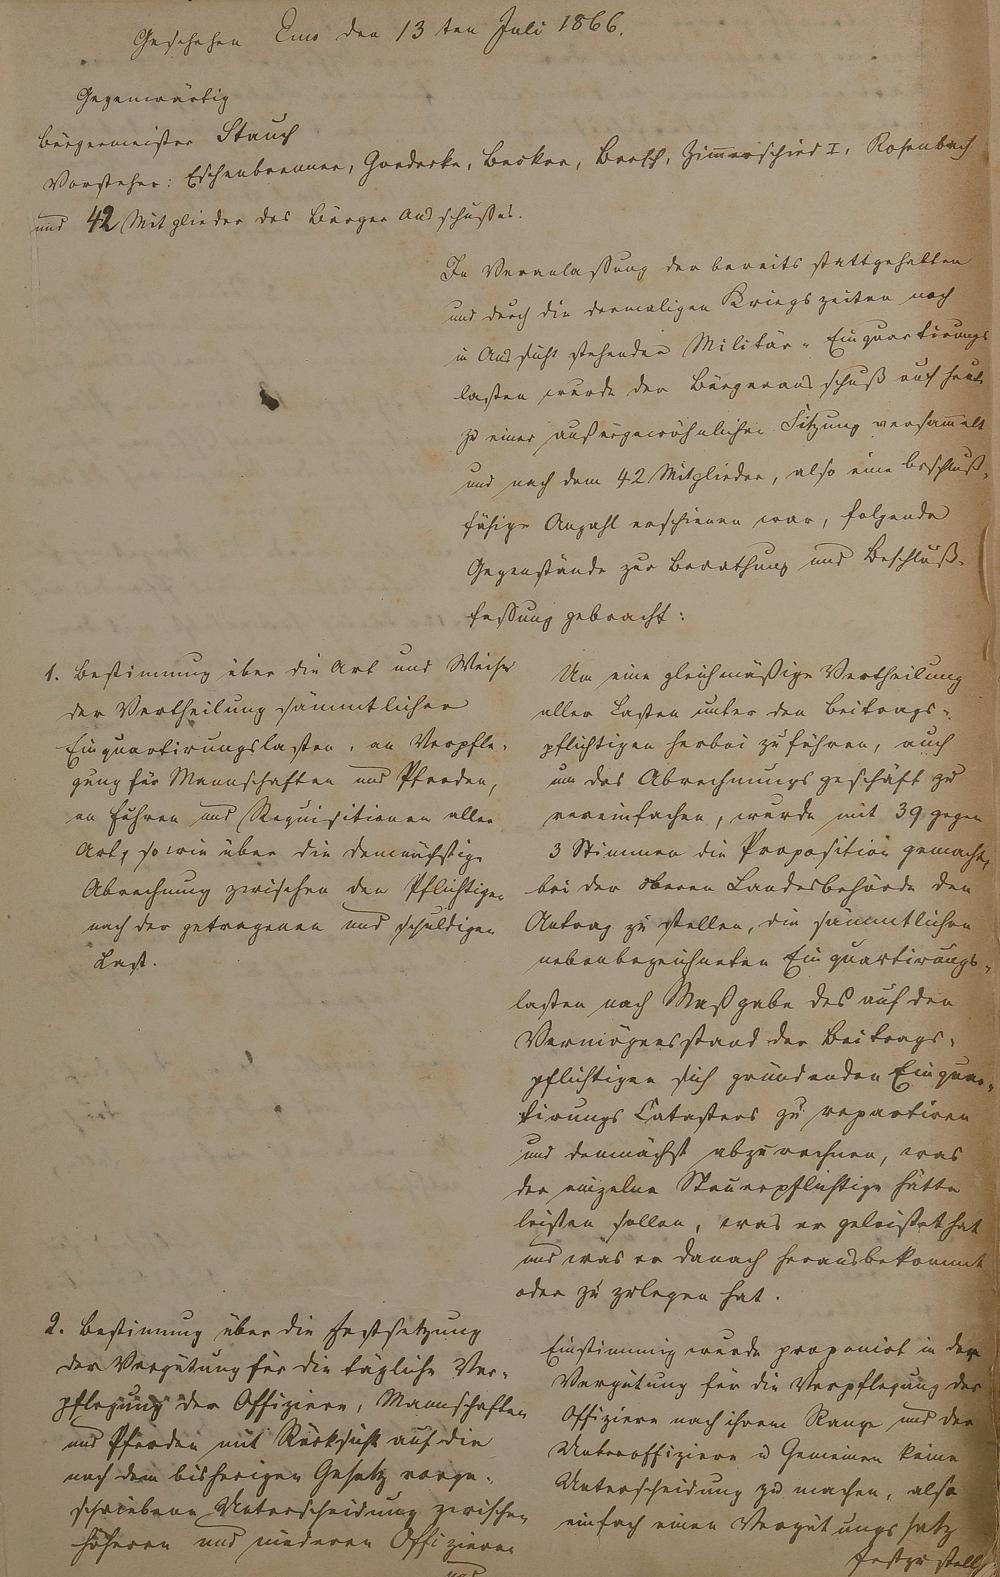 Geschehen Ems den 13 ten Juli 1866.
Gegenwärtig
Bürgermeister Stauch
Vorsteher: Eschenbrenner, Goedecke, Becker, Zimerschied I, Rosenbach
und 42 Mitglieder des Bürger Ausschußes.
In Veranlassung der bereits stattgehabten
und durch die dermaligen Kriegszeiten noch
in Aussicht stehenden Militär- Einquartirungs
lasten wurde der Bürgerausschuß auf heute
zu einer außergewöhnlichen Sitzung versamelt
und nach dem 42 Mitglieder, also eine beschluß-
fähige Anzahl erschienen war, folgende
Gegenstände zur Berathung und Beschluß-
fassung gebracht:
1. Bestimmung über die Art und Weise
der Vertheilung sämmtlicher
Einquartirungslasten, an Verpfle-
gung für Mannschaften und Pferden,
an Fuhren und Requisitionen aller
Art, sowie über die demnächstige
Abrechnung zwischen den Pflichtigen
nach der getragenen und schuldigen
Last.
Um eine gleichmäßige Vertheilung
aller Lasten unter den Beitrags-
pflichtigen herbei zuführen, auch
um das Abrechnungsgeschäft zu
vereinfachen, wurde mit 39 gegen
3 Stimmen die Proposition gemacht,
bei der oberen Landesbehörde den
Antrag zu stellen, die sämmtlichen
nebenbezeichneten Einquartirungs-
lasten nach Maßgabe des auf den
Vermögensstand der Beitrags-
pflichtigen sich gründenden Einquar-
tirungs Catasters zu repartiren
und demnächst abzurechnen, was
der einzelne Steuerpflichtige hätte
leisten sollen, was er geleistet hat
und was er danach herausbekommt
oder zu zulegen hat.
2. Bestimmung über die Festsetzung
der Vergütung für die tägliche Ver-
pflegung der Offiziere, Mannschaften
und Pferden mit Rücksicht auf die
nach dem bisherigen Gesetz vorge-
schriebene Unterscheidung zwischen
höheren und niederen Offizieren
und
Einstimmig wurde proponirt in der
Vergütung für die Verpflegung der
Offiziere nach ihrem Range und der
Unteroffiziere u Gemeinen keine
Unterscheidung zu machen, also
einfach einen Vergütungssatz
festzustellen